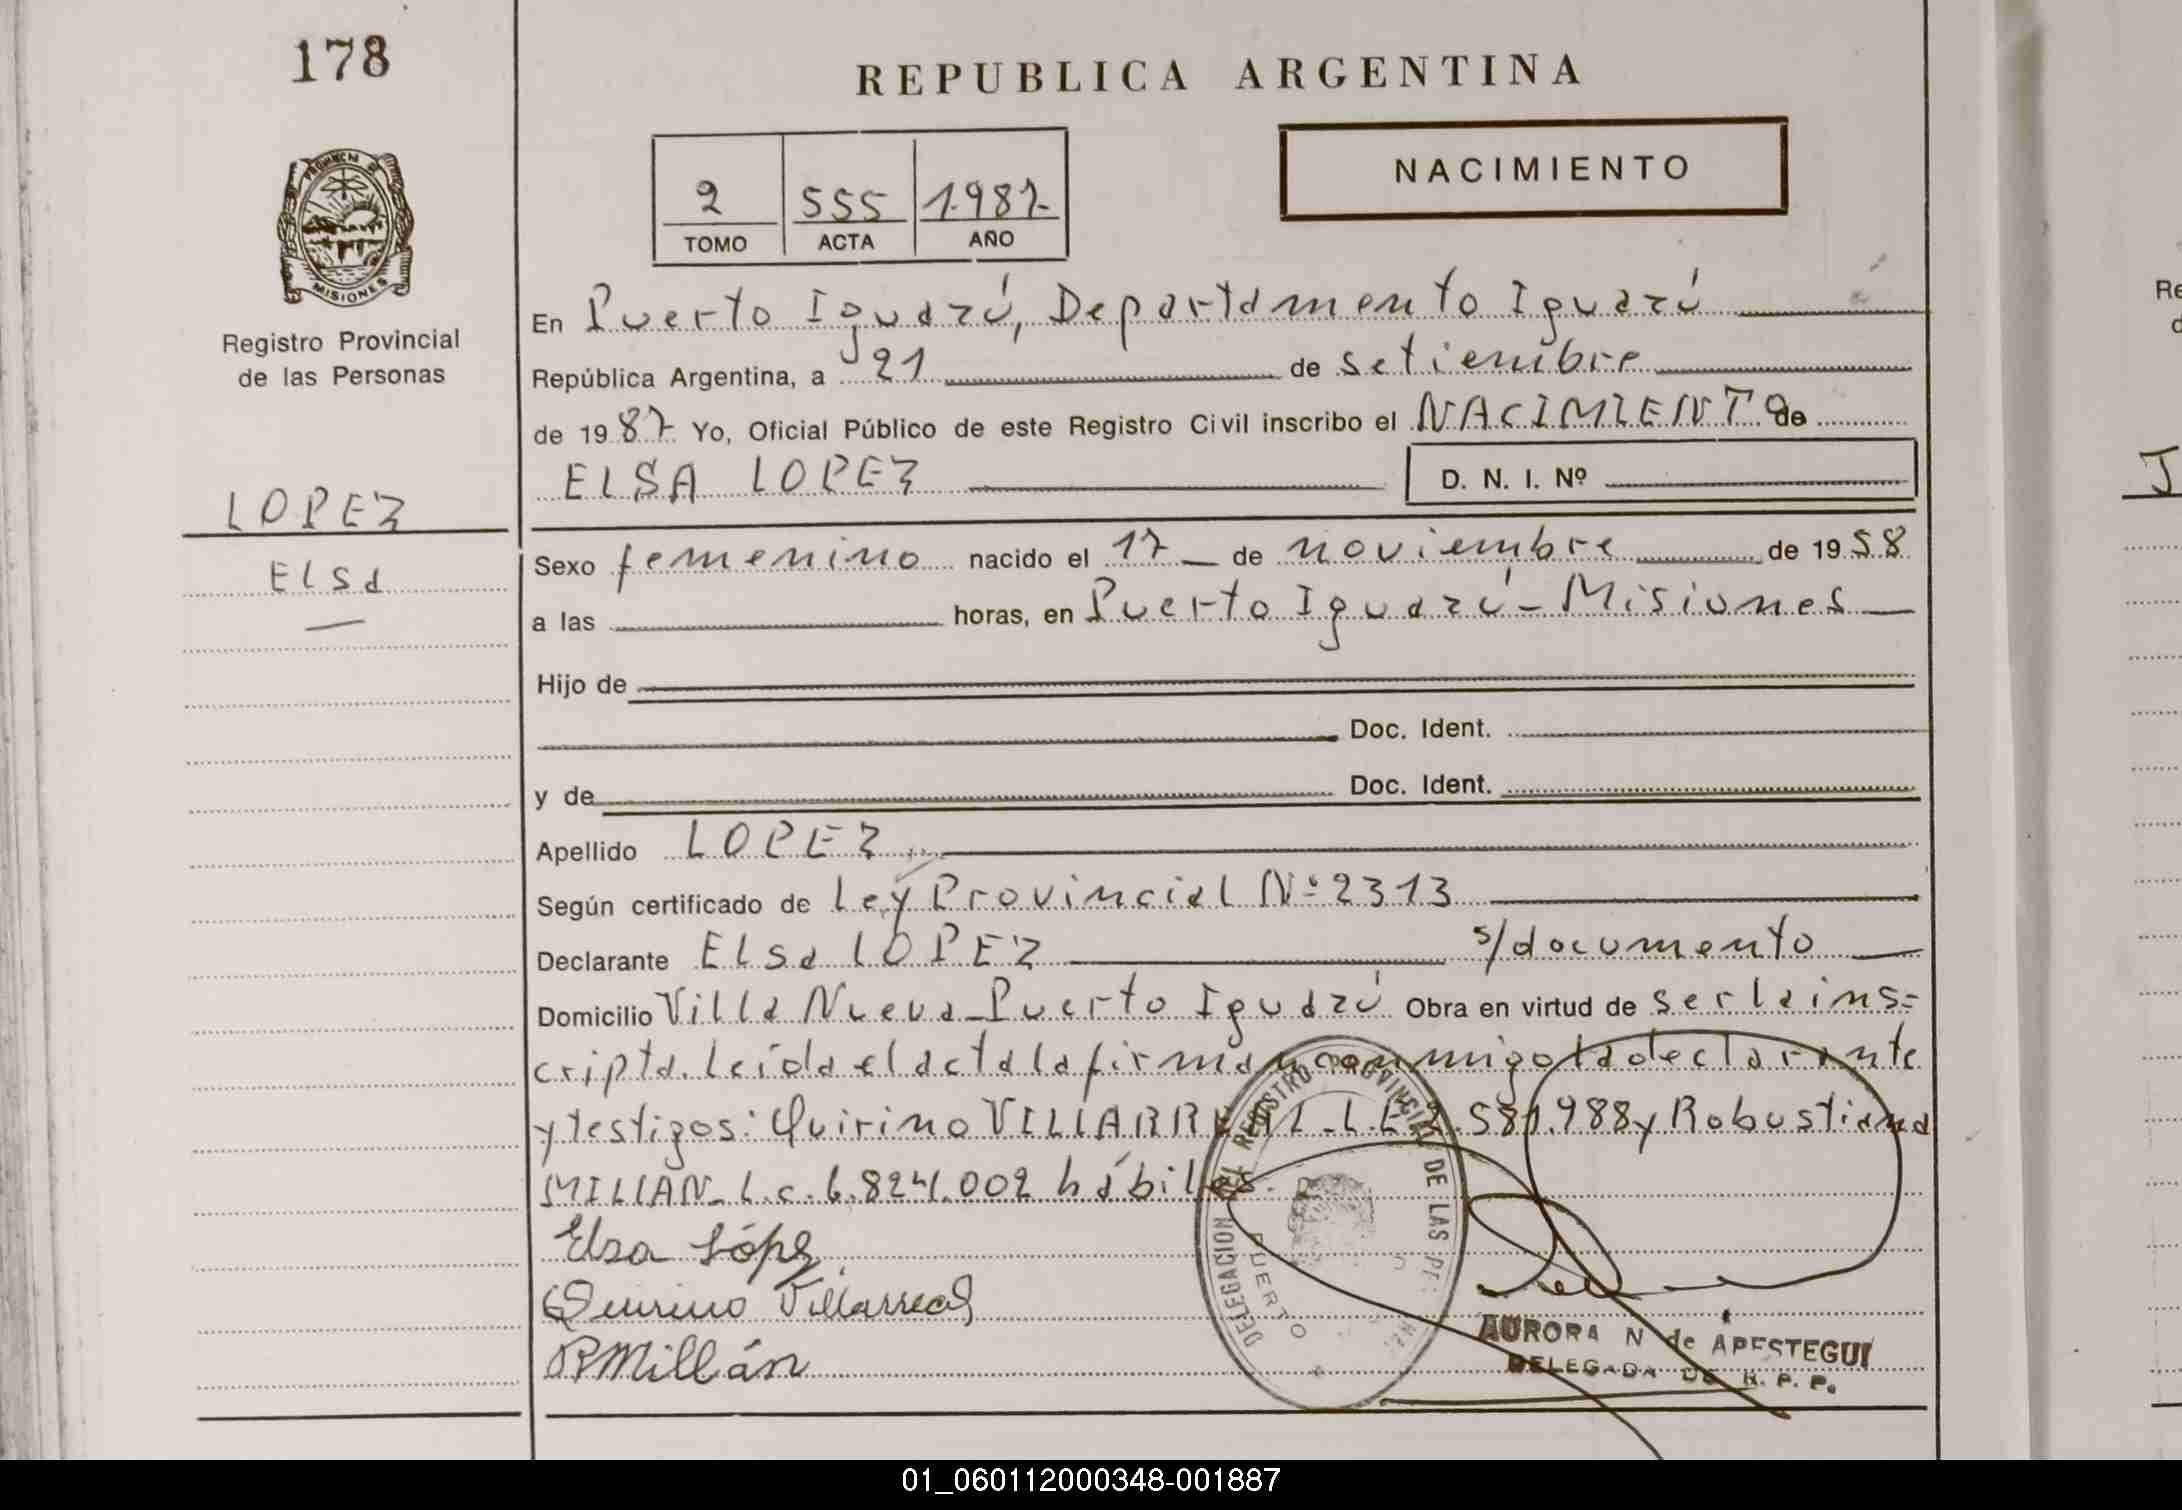 178
REPUBLICA ARGENTINA
NACIMIENTO
2 555 1987
TOMO ACTA AÑO
PROVINCIA DE
MISIONES
Registro Provincial
de las Personas
En Puerto Iguazú, Departamento Iguazú
República Argentina, a 21 de setiembre
de 1987 Yo, Oficial Público de este Registro Civil inscribo el NACIMIENTO de
ELSA LOPEZ D. N. I. Nº
LOPEZ
Elsa
Sexo femenino nacido el 17 de noviembre de 1958
a las horas, en Puerto Iguazú - Misiones
Hijo de
Doc. Ident.
y de Doc. Ident.
Apellido LOPEZ
Según certificado de Ley Provincial Nº 2313
Declarante Elsa LOPEZ s/documento
Domicilio Villa Nueva - Puerto Iguazú Obra en virtud de ser la ins=
cripta. Leída el acta la firman conmigo la declarante
y testigos: Quirino VILLARREAL - L.E. 2.581.988 y Robustiana
MILLAN - L.C. 6.824.002 hábiles.
Elsa López
Quirino Villarreal
R Millán
DELEGACION DEL REGISTRO PROVINCIAL DE LAS
PUERTO
AURORA N de APESTEGUI
DELEGADA DE R. P. P.
01_060112000348-001887